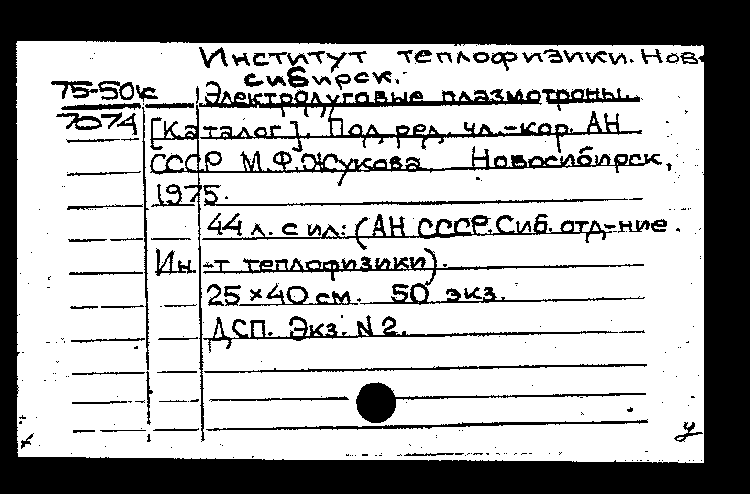 Институт теплофизики. Нов-
сибирск.
75-50к Электродуговые плазмотроны.
7074 [Каталог]. Под ред. чл.-кор. АН
СССР М.Ф.Жукова. Новосибирск,
1975.
44 л. с ил: (АН СССР. Сиб. отд-ние.
Ин-т теплофизики).
25×40 см. 50 экз.
ДСП. Экз. N 2.
у